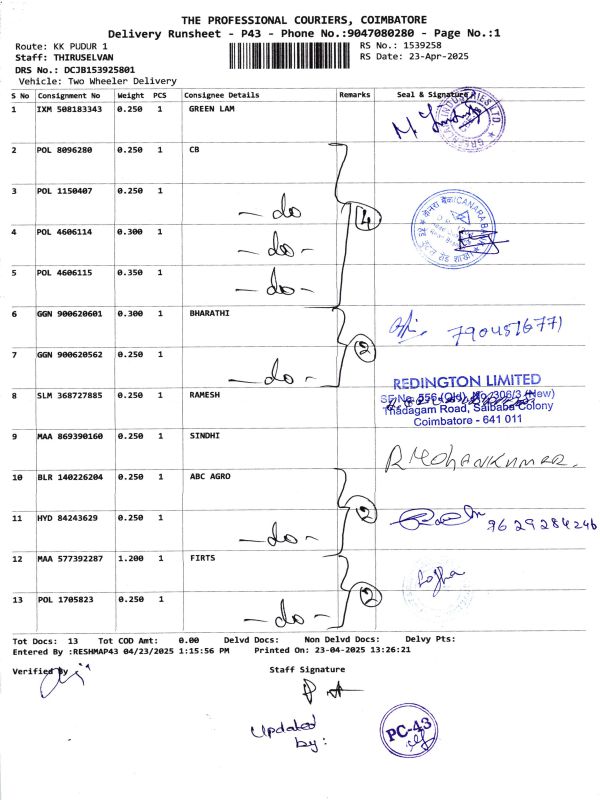 THE PROFESSIONAL COURIERS, COIMBATORE
Delivery Runsheet - P43 - Phone No.:9047080280 - Page No.:1
Route: KK PUDUR 1 RS No.: 1539258
Staff: THIRUSELVAN RS Date: 23-Apr-2025
DRS No.: DCJB153925801
Vehicle: Two Wheeler Delivery
S No Consignment No Weight PCS Consignee Details Remarks Seal & Signature
1 IXM 508183343 0.250 1 GREEN LAM
2 POL 8096280 0.250 1 CB
3 POL 1150407 0.250 1
- do 4 CANARA
4 POL 4606114 0.300 1
- do -
5 POL 4606115 0.350 1
- do -
6 GGN 900620601 0.300 1 BHARATHI
7904516771
7 GGN 900620562 0.250 1 2
- do -
REDINGTON LIMITED
8 SLM 368727885 0.250 1 RAMESH
SF.No. 556 (Old), No. 306/3 (New)
Thadagam Road, Saibaba Colony
Coimbatore - 641 011
9 MAA 869390160 0.250 1 SINDHI
R MOHANKUMAR.
10 BLR 140226204 0.250 1 ABC AGRO
11 HYD 84243629 0.250 1 2 9629284246
- do -
12 MAA 577392287 1.200 1 FIRTS
13 POL 1705823 0.250 1 2
- do -
Tot Docs: 13 Tot COD Amt: 0.00 Delvd Docs: Non Delvd Docs: Delvy Pts:
Entered By :RESHMAP43 04/23/2025 1:15:56 PM Printed On: 23-04-2025 13:26:21
Verified By Staff Signature
Updated
by:
PC-43